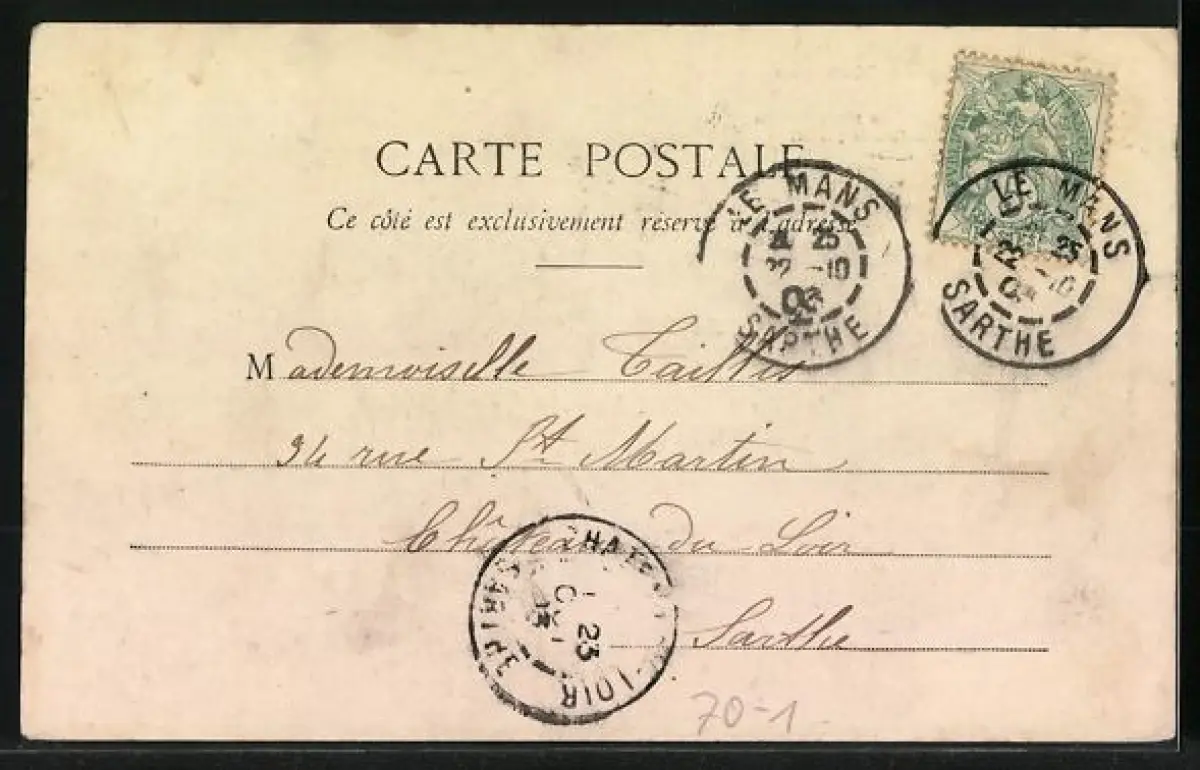 CARTE POSTALE
Ce côté est exclusivement réservé à l'adresse
LE MANS
25
-10
SARTHE
LE MANS
23 25
-10
SARTHE
Mademoiselle
34 rue St Martin
Château-du-Loir
Sarthe
23
LOIR
70-1